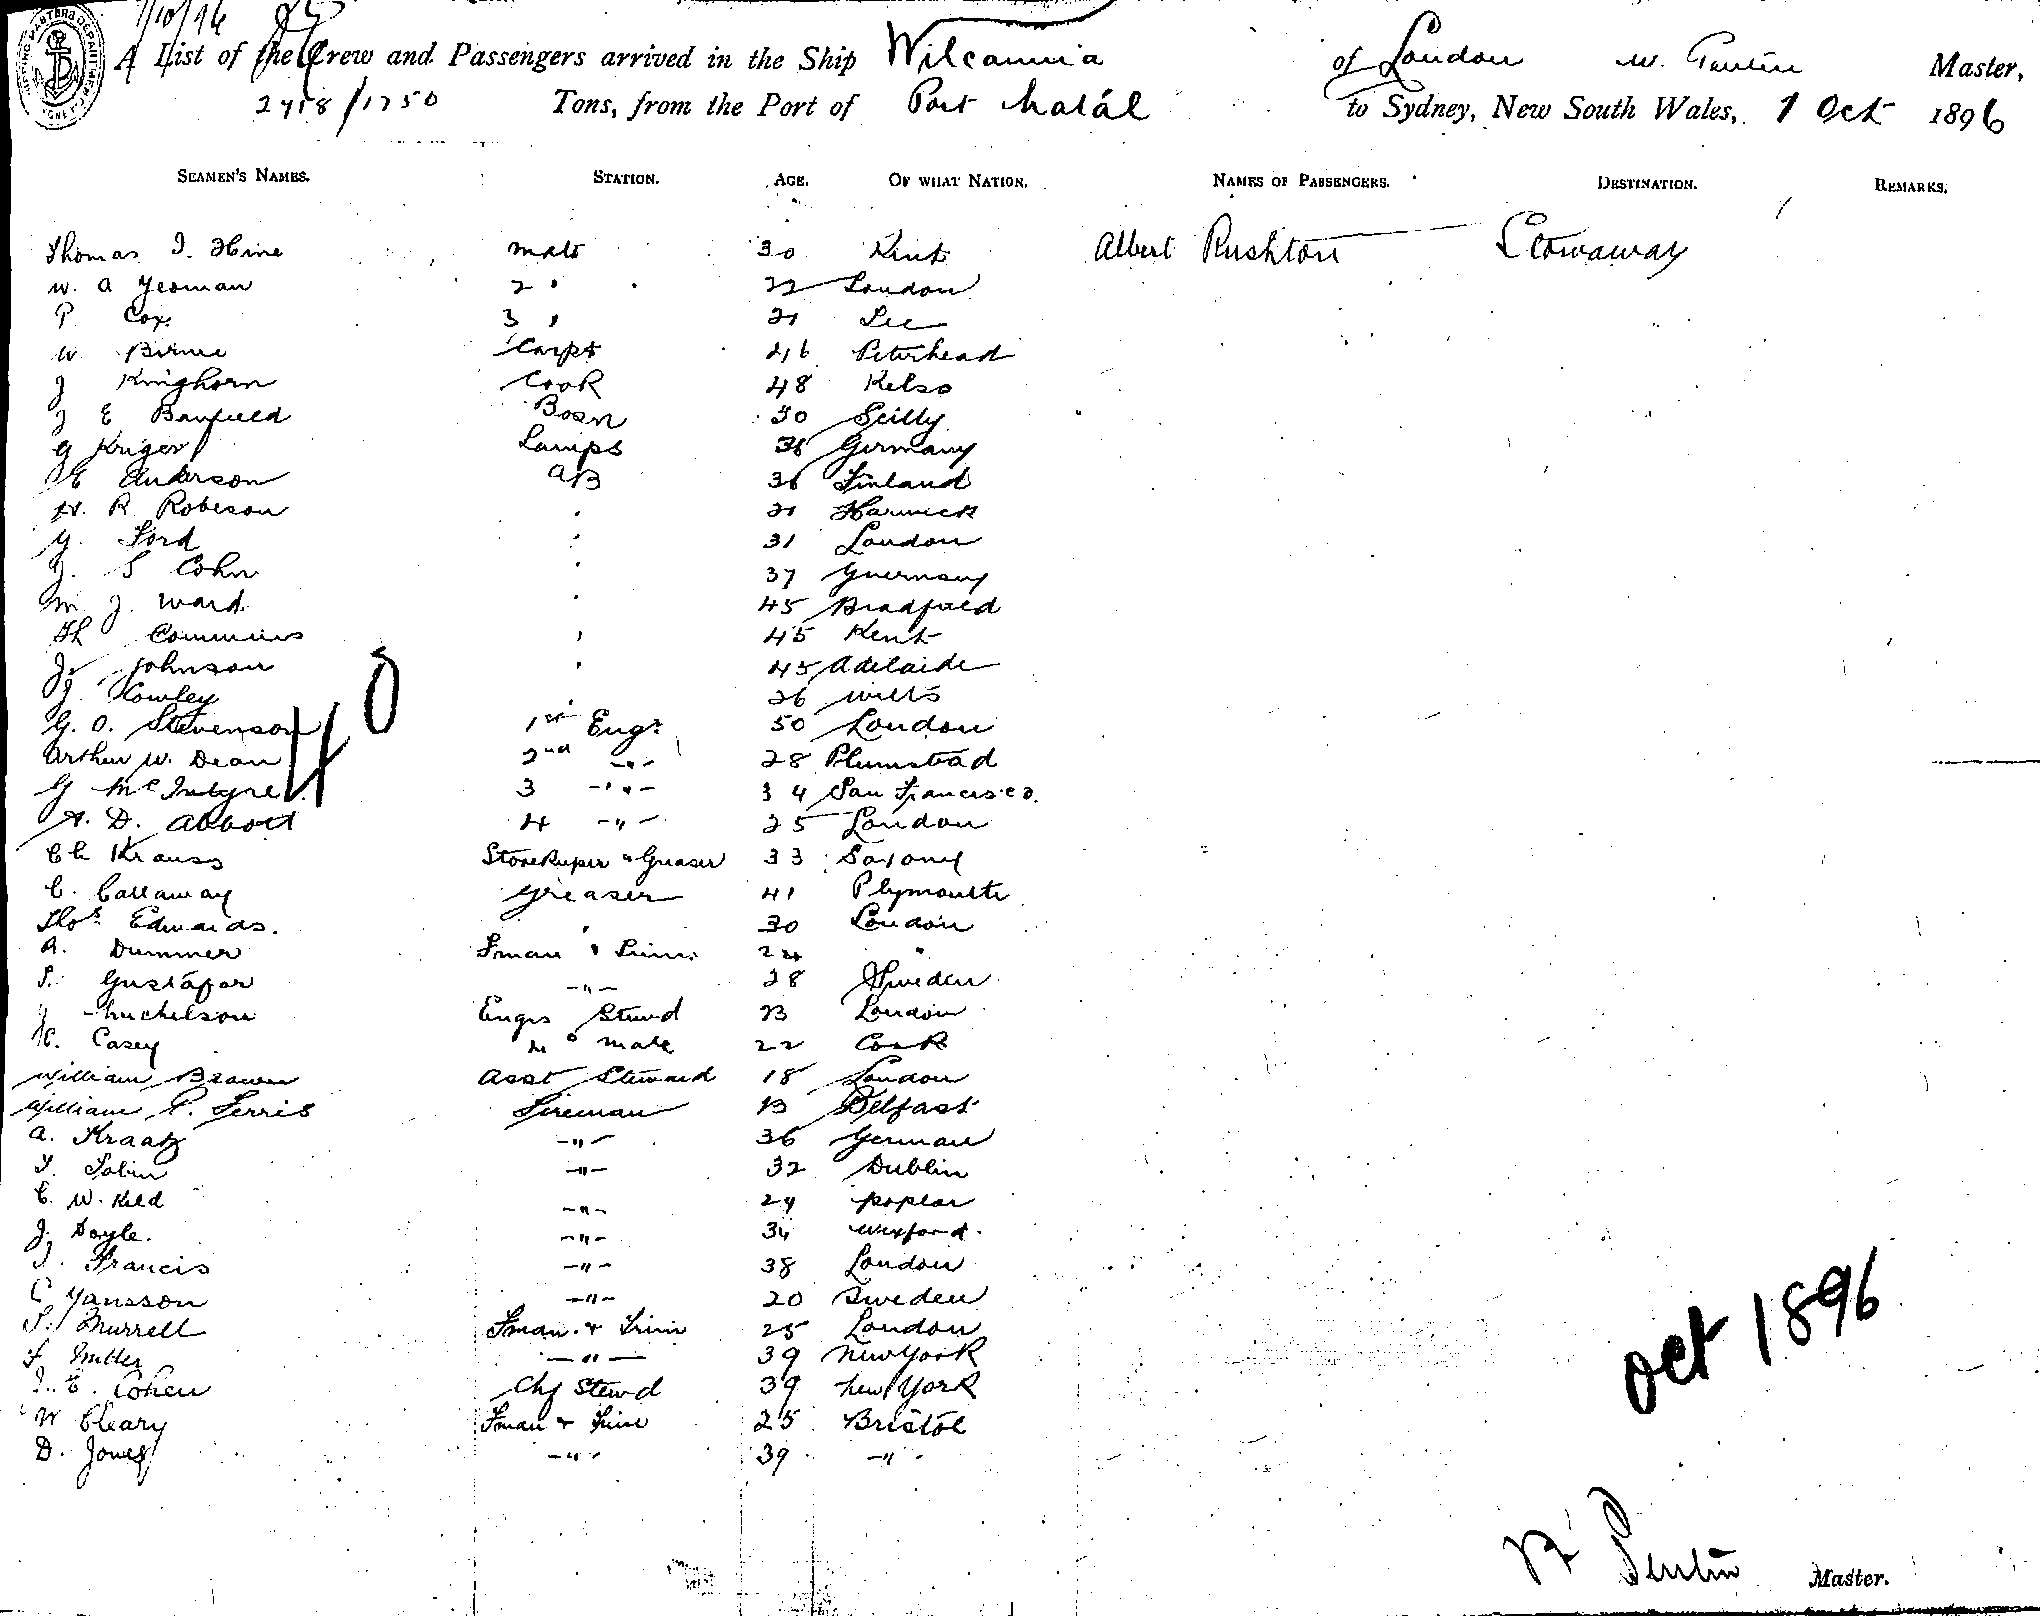 7/10/96
A List of the Crew and Passengers arrived in the Ship Wilcannia of London W. Master,
Tons, from the Port of Port Natal to Sydney, New South Wales, 1 Oct 1896
SEAMEN'S NAMES. STATION. AGE. OF WHAT NATION. NAMES OF PASSENGERS. DESTINATION. REMARKS.
Thomas J. Hine Mate 30 Kent Albert Rushton Stowaway
W. A Yeoman 2 " 22 London
P Cox 3 " 21 Lee
W. Birnie Carpt 46 Peterhead
J Kinghorn Cook 48 Kelso
J E Banfield Bosn 30 Scilly
G Kriger Lamps 38 Germany
Anderson AB 36 Finland
H. R. Robeson " 21 Harwich
G. Ford " 31 London
J. S Cohn " 37 Guernsey
M. J. Ward " 45 Bradfield
Th Commins " 45 Kent
Jo Johnson " 45 Adelaide
J. Cowley " 26 Wilts
G. O. Stevenson 1st Engr 50 London
Arthur W. Dean 2nd -"- 28 Plumstead
G McIntyre 3 -"- 34 San Francisco.
A. D. Abbott 4 -"- 25 London
Ch Krauss Storekeeper & Greaser 33 Saxony
C. Callaway Greaser 41 Plymouth
Thos Edwards. " 30 London
A. Dummer Fman & Trim. 24 "
S. Gustafor -"- 28 Sweden
J Muchelson Engrs Stewd 23 London
H. Casey Mate 22 Cork
William Brown Asst Steward 18 London
William P. Ferris Fireman 23 Belfast
A. Kraatz -"- 36 German
T. Tobin -"- 32 Dublin
C. W. Keld -"- 24 Poplar
J. Doyle. -"- 34 Wexford.
J. Francis -"- 38 London
C Yansson -"- 20 Sweden
S. Murrell Fman. & Trim 25 London
F Miller -"- 39 New York
J. E. Cohen Chf Stewd 39 New York
W Cleary Fman & Trim 25 Bristol
D. Jones -"- 39 -"-
40
Oct 1896
Master.